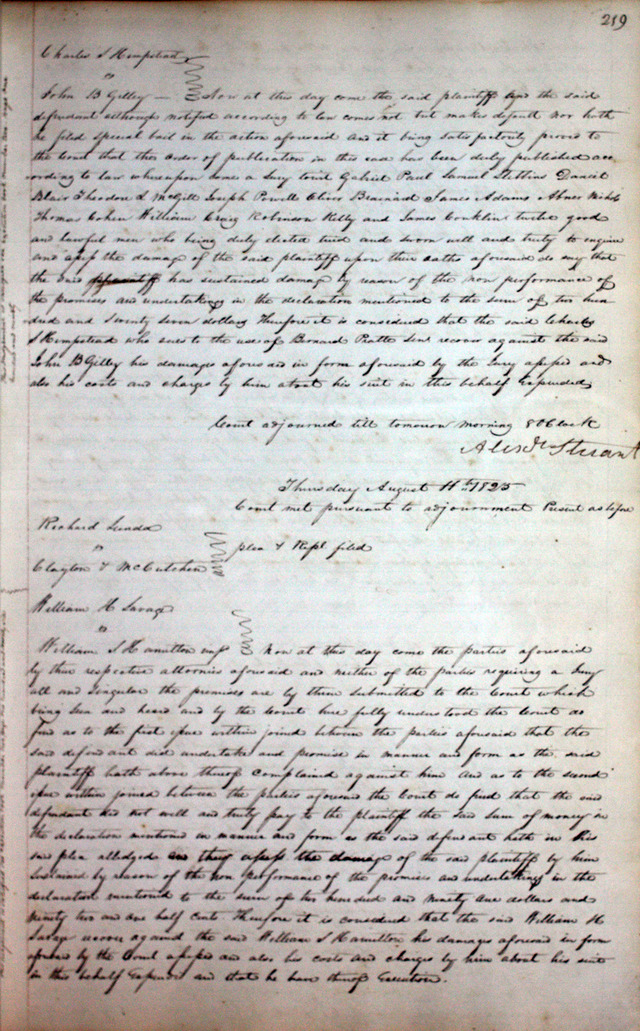 219
Charles S Hempstead
"
John B Gilley — Now at this day come the said plaintiff and the said
defendant although notified according to law comes not but makes default nor hath
he filed special bail in the action aforesaid and it being satisfactorily proved to
the Court that the order of publication in this case has been duly published acc
ording to law whereupon come a Jury towit Gabriel Paul Samuel Stettins Daniel
Blair Theodore L McGill Joseph Powell Oliver James Adams Abner
Thomas Cohen William Craig Robinson Killy and James Conklin twelve good
and lawful men who being duly elected tried and sworn well and truly to enquire
and assess the damage of the said plaintiff upon their oaths aforesaid do say that
the said plaintiff has sustained damage by reason of the non performance of
the promises and undertakings in the declaration mentioned to the sum of two hun
dred and seventy seven dollars Therefore it is considered that the said Charles
S Hempstead who sues to the use of Bernard Pratte Senr recover against the said
John B Gilley his damages aforesaid in form aforesaid by the Jury assessed and
also his costs and charges by him about his suit in this behalf Expended
Court adjourned till tomorrow morning 8 OClock
Alexdr Stuart
Thursday August 11th 1825
Court met pursuant to adjournment Present as before
Richard
"
plea & Repl filed
Clayton & McCutchen
William H Savage
"
William S Hamilton now at this day come the parties aforesaid
by their respective attornies aforesaid and neither of the parties requiring a Jury
all and singular the promises are by them submitted to the Court which
being seen and heard and by the Court here fully understood the Court do
find as to the first issue within joined between the parties aforesaid that the
said defendant did undertake and promise in manner and form as the said
plaintiff hath above thereof complained against him and as to the second
issue within joined between the parties aforesaid the Court do find that the said
defendant did not well and truly pay to the plaintiff the said sum of money in
the declaration mentioned in manner and form as the said defendant hath in his
said plea alledged and they assess the damage of the said plaintiff by him
sustained by reason of the non performance of the promises and undertakings in the
declaration mentioned to the sum of two hundred and ninety one dollars and
ninety two and one half Cents Therefore it is considered that the said William H
Savage recover against the said William S Hamilton his damages aforesaid in form
aforesaid by the Court assessed and also his costs and charges by him about his suit
in this behalf Expended and that he have thereof Execution.